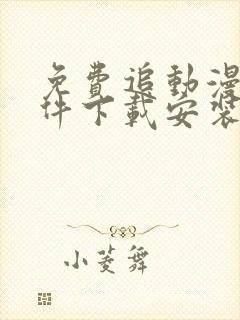 免費追動漫
件下載安裝
小菱舞